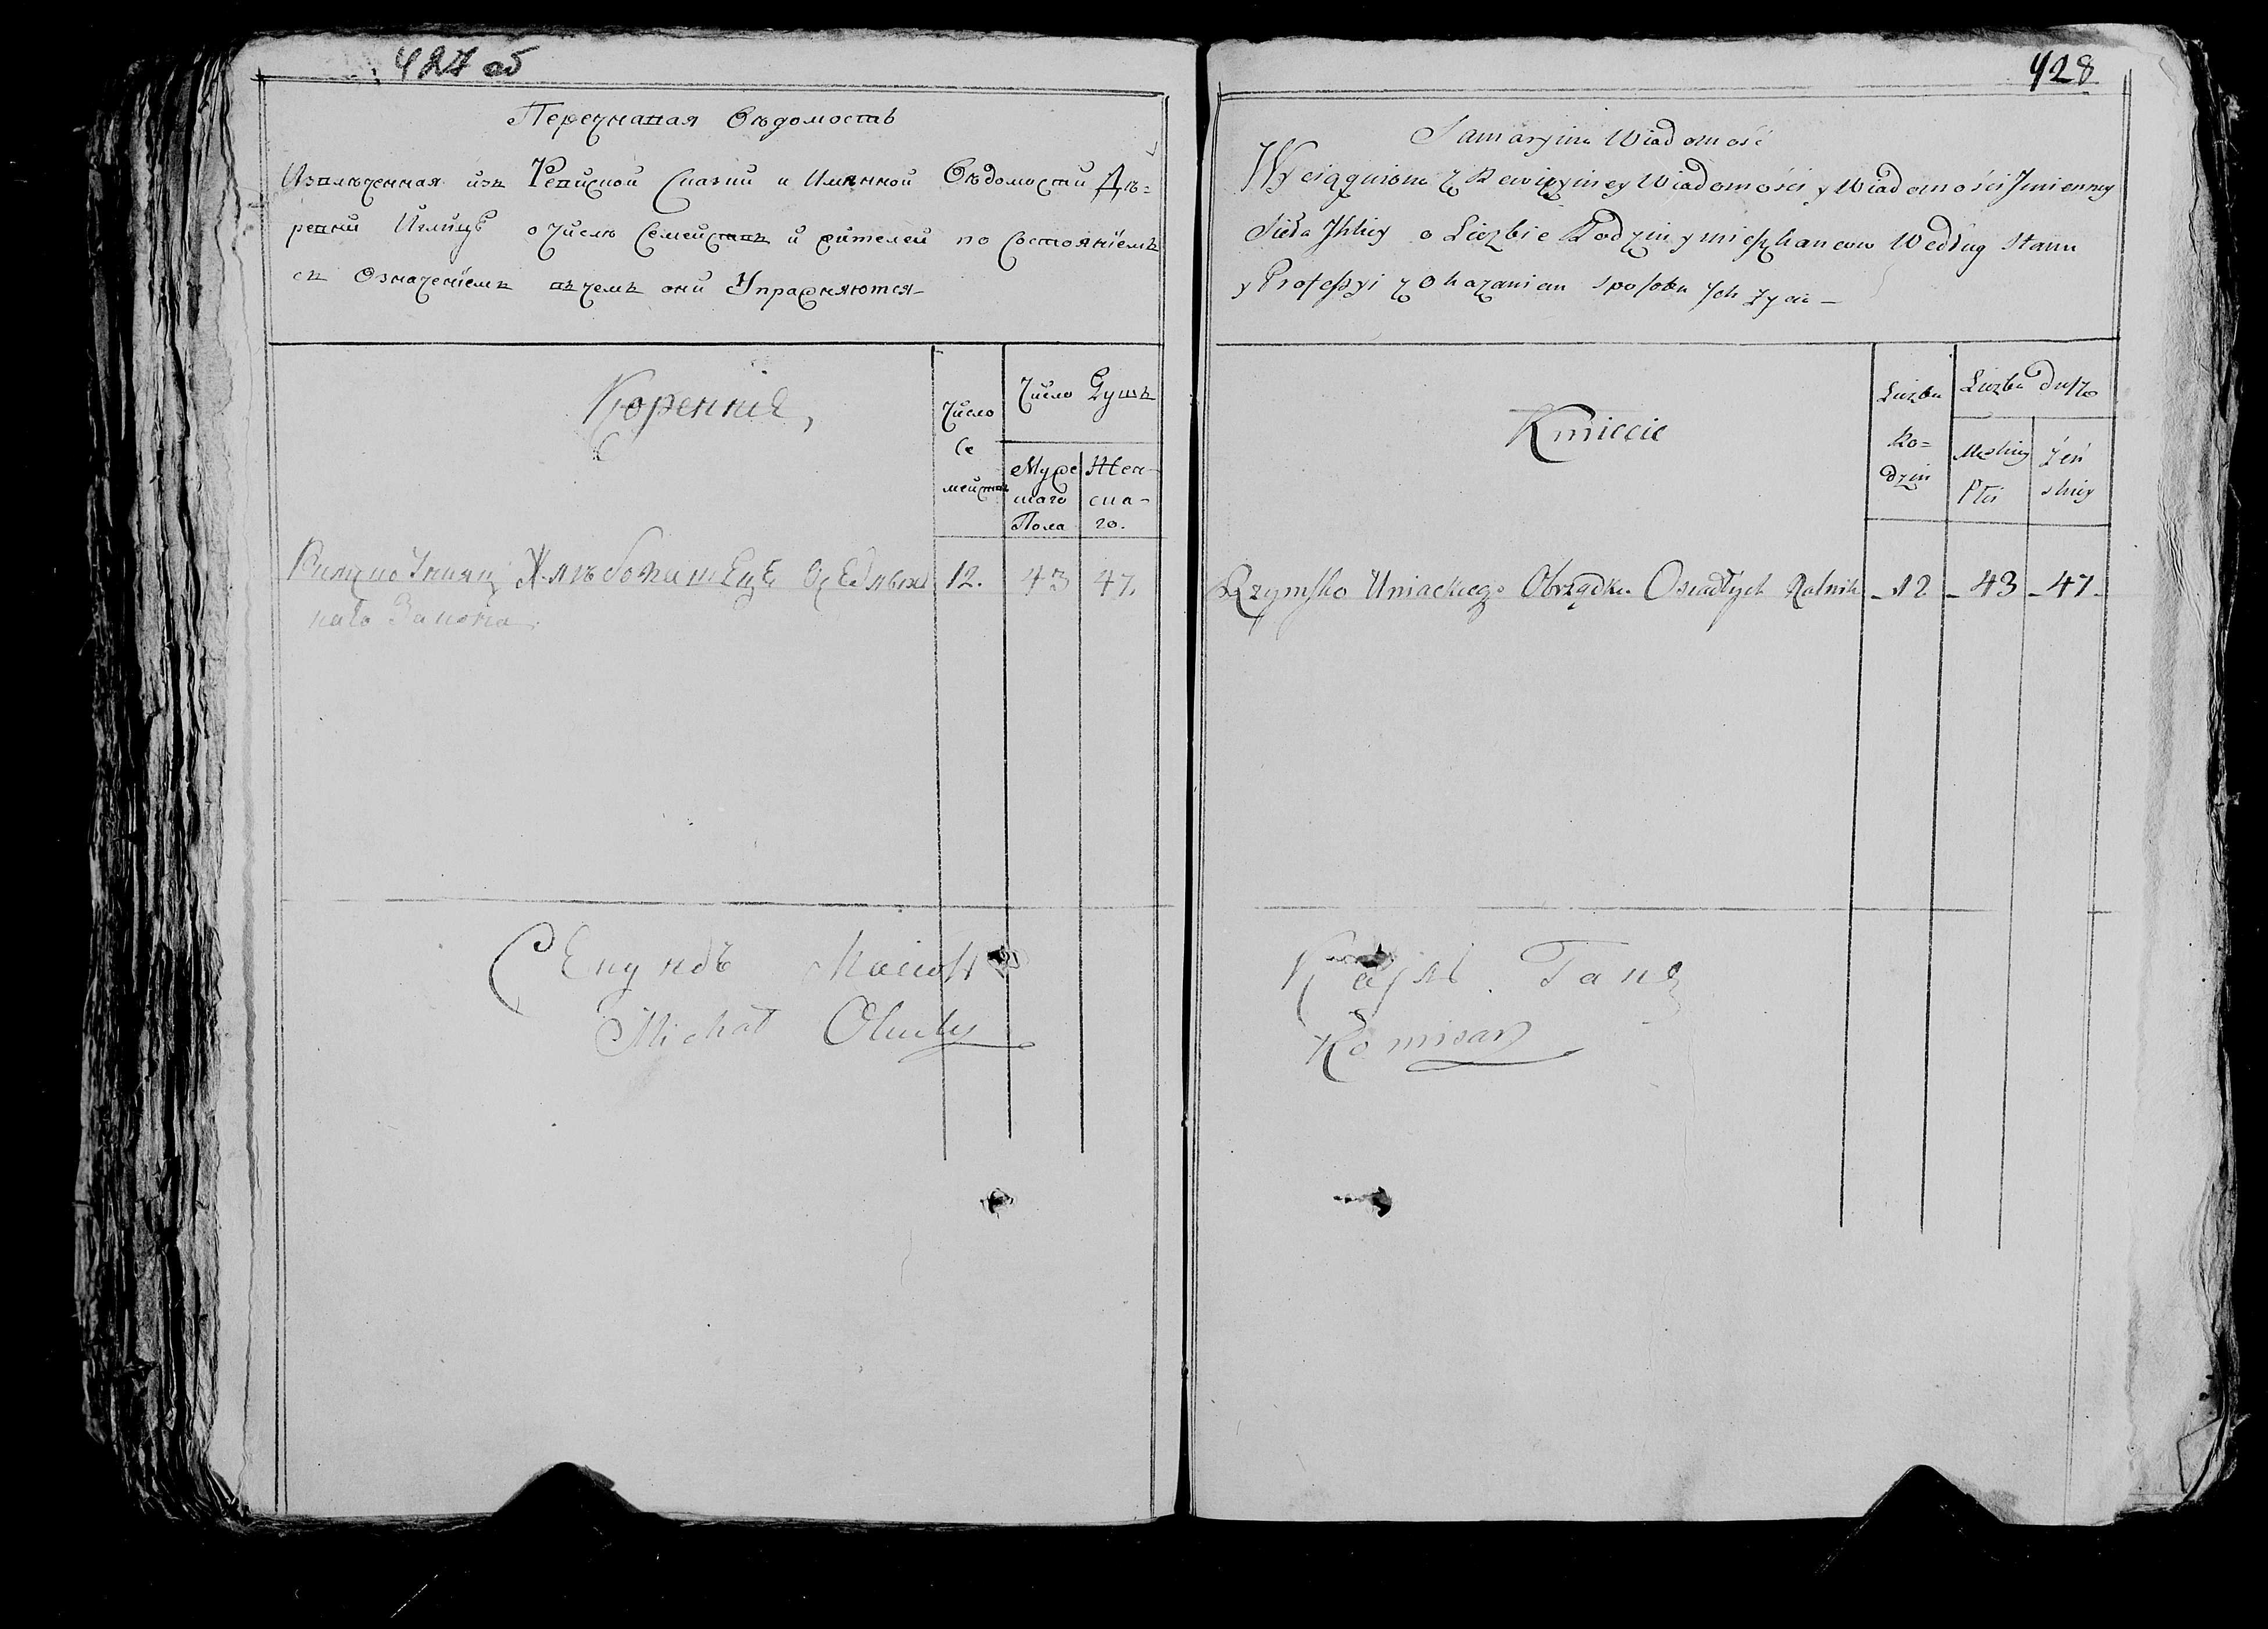 427 об
Перечнавая Вѣдомость
Извлѣченная изъ Ревиской Сказки и Имѣнной Вѣдомости Де=
ревни о числѣ Семействъ и жителей по Состояніемъ
съ Означеніемъ въ чемъ они Упражняются
Коренніе,
Число
Се
мействъ
Число Душъ
Муже
скаго
Пола
Жен-
ска-
го.
Римско Униац Хлѣбопашецъ Осѣдлыхъ 12. 43 47.
каго Закона
Michał
428
Sumaryina Wiadomość
Wyciągniona z Rewizyiney Wiadomości y Wiadomości Jmienney
Sioła o Liczbie Rodzin y mieszkancow Według stanu
y Professyi z Okazaniem sposobu Jch życia
Kmiecie
Liczba
Ro=
dzin
Liczba dusz
Męskiey
Płci
żeń
skiey
Rzymsko Uniackiego Obrządku Osiadłych Rolnik - 12 - 43 - 47 -
Komisarz